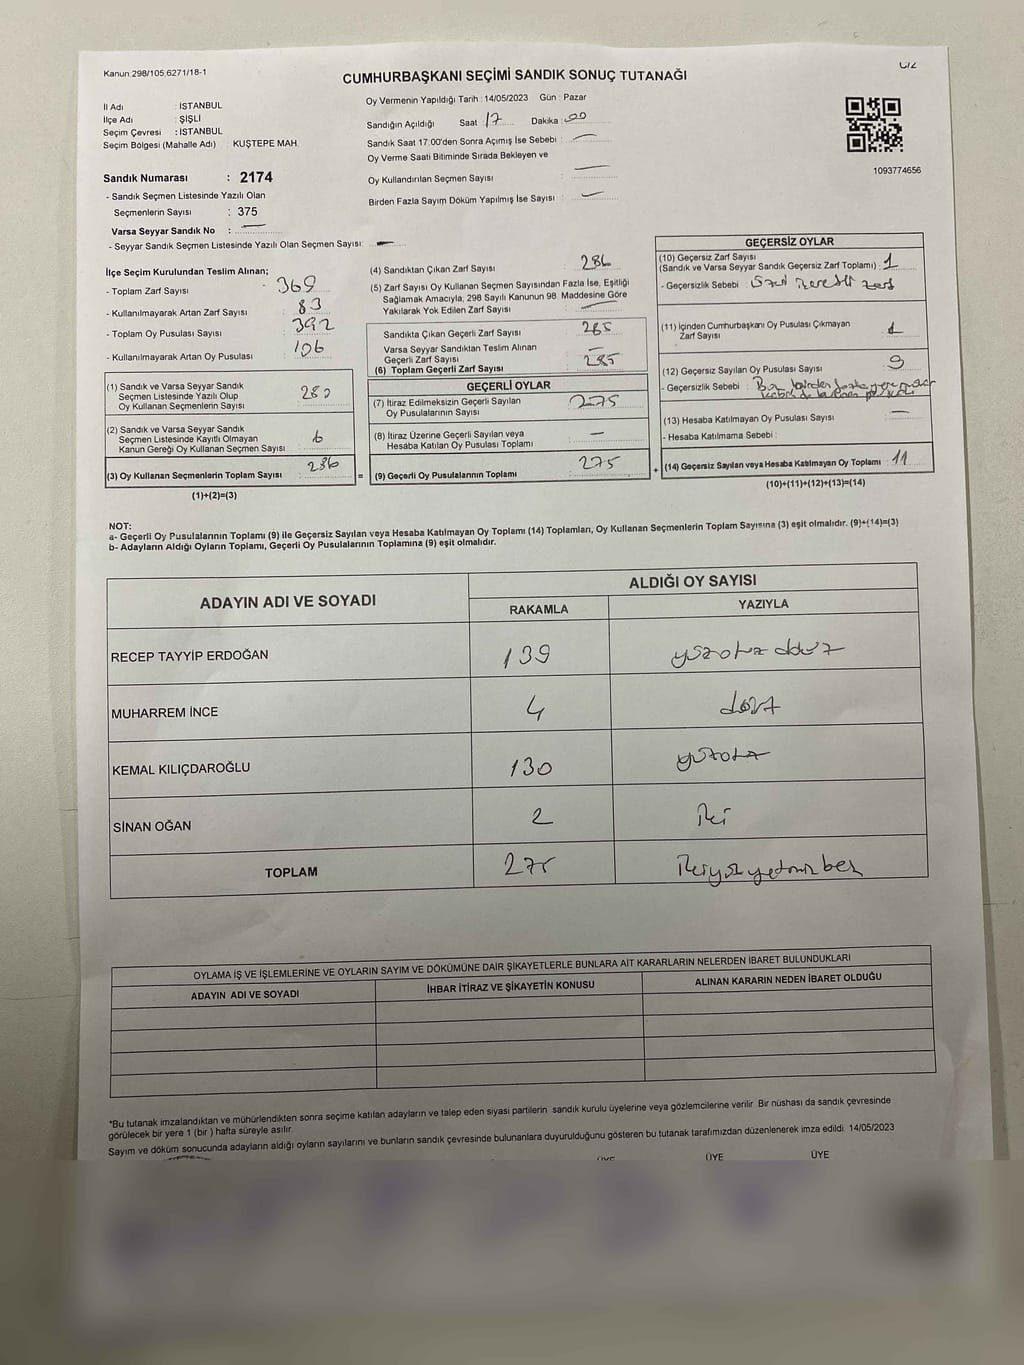 Kanun:298/105;6271/18-1
CUMHURBAŞKANI SEÇİMİ SANDIK SONUÇ TUTANAĞI
İl Adı : İSTANBUL
İlçe Adı : ŞİŞLİ
Seçim Çevresi : İSTANBUL
Seçim Bölgesi (Mahalle Adı) KUŞTEPE MAH.
Oy Vermenin Yapıldığı Tarih : 14/05/2023 Gün : Pazar
Sandığın Açıldığı Saat : 17 Dakika : 00
Sandık Saat 17:00'den Sonra Açımış İse Sebebi : —
Oy Verme Saati Bitiminde Sırada Bekleyen ve
Oy Kullandırılan Seçmen Sayısı : —
Birden Fazla Sayım Döküm Yapılmış İse Sayısı : —
1093774656
Sandık Numarası : 2174
- Sandık Seçmen Listesinde Yazılı Olan
Seçmenlerin Sayısı : 375
Varsa Seyyar Sandık No : —
- Seyyar Sandık Seçmen Listesinde Yazılı Olan Seçmen Sayısı: —
İlçe Seçim Kurulundan Teslim Alınan;
- Toplam Zarf Sayısı : 369
- Kullanılmayarak Artan Zarf Sayısı : 83
- Toplam Oy Pusulası Sayısı : 392
- Kullanılmayarak Artan Oy Pusulası : 106
(1) Sandık ve Varsa Seyyar Sandık
Seçmen Listesinde Yazılı Olup
Oy Kullanan Seçmenlerin Sayısı : 280
(2) Sandık ve Varsa Seyyar Sandık
Seçmen Listesinde Kayıtlı Olmayan
Kanun Gereği Oy Kullanan Seçmen Sayısı : 6
(3) Oy Kullanan Seçmenlerin Toplam Sayısı : 286
(1)+(2)=(3)
(4) Sandıktan Çıkan Zarf Sayısı : 286
(5) Zarf Sayısı Oy Kullanan Seçmen Sayısından Fazla İse, Eşitliği
Sağlamak Amacıyla, 298 Sayılı Kanunun 98. Maddesine Göre
Yakılarak Yok Edilen Zarf Sayısı : —
Sandıkta Çıkan Geçerli Zarf Sayısı : 285
Varsa Seyyar Sandıktan Teslim Alınan
Geçerli Zarf Sayısı : —
(6) Toplam Geçerli Zarf Sayısı : 285
GEÇERLİ OYLAR
(7) İtiraz Edilmeksizin Geçerli Sayılan
Oy Pusulalarının Sayısı : 275
(8) İtiraz Üzerine Geçerli Sayılan veya
Hesaba Katılan Oy Pusulası Toplamı : —
= (9) Geçerli Oy Pusulalarının Toplamı : 275
GEÇERSİZ OYLAR
(10) Geçersiz Zarf Sayısı
(Sandık ve Varsa Seyyar Sandık Geçersiz Zarf Toplamı) : 1
- Geçersizlik Sebebi : zarf
(11) İçinden Cumhurbaşkanı Oy Pusulası Çıkmayan
Zarf Sayısı : 1
(12) Geçersiz Sayılan Oy Pusulası Sayısı : 9
- Geçersizlik Sebebi : Birden fazla yere
(13) Hesaba Katılmayan Oy Pusulası Sayısı : —
- Hesaba Katılmama Sebebi :
+ (14) Geçersiz Sayılan veya Hesaba Katılmayan Oy Toplamı : 11
(10)+(11)+(12)+(13)=(14)
NOT:
a- Geçerli Oy Pusulalarının Toplamı (9) ile Geçersiz Sayılan veya Hesaba Katılmayan Oy Toplamı (14) Toplamları, Oy Kullanan Seçmenlerin Toplam Sayısına (3) eşit olmalıdır. (9)+(14)=(3)
b- Adayların Aldığı Oyların Toplamı, Geçerli Oy Pusulalarının Toplamına (9) eşit olmalıdır.
ADAYIN ADI VE SOYADI ALDIĞI OY SAYISI
RAKAMLA YAZIYLA
RECEP TAYYİP ERDOĞAN 139 yüzotuzdokuz
MUHARREM İNCE 4 dört
KEMAL KILIÇDAROĞLU 130 yüzotuz
SİNAN OĞAN 2 iki
TOPLAM 275 ikiyüzyetmişbeş
OYLAMA İŞ VE İŞLEMLERİNE VE OYLARIN SAYIM VE DÖKÜMÜNE DAİR ŞİKAYETLERLE BUNLARA AİT KARARLARIN NELERDEN İBARET BULUNDUKLARI
ADAYIN ADI VE SOYADI İHBAR İTİRAZ VE ŞİKAYETİN KONUSU ALINAN KARARIN NEDEN İBARET OLDUĞU
*Bu tutanak imzalandıktan ve mühürlendikten sonra seçime katılan adayların ve talep eden siyasi partilerin sandık kurulu üyelerine veya gözlemcilerine verilir. Bir nüshası da sandık çevresinde
görülecek bir yere 1 (bir ) hafta süreyle asılır.
Sayım ve döküm sonucunda adayların aldığı oyların sayılarını ve bunların sandık çevresinde bulunanlara duyurulduğunu gösteren bu tutanak tarafımızdan düzenlenerek imza edildi. 14/05/2023
ÜYE ÜYE ÜYE